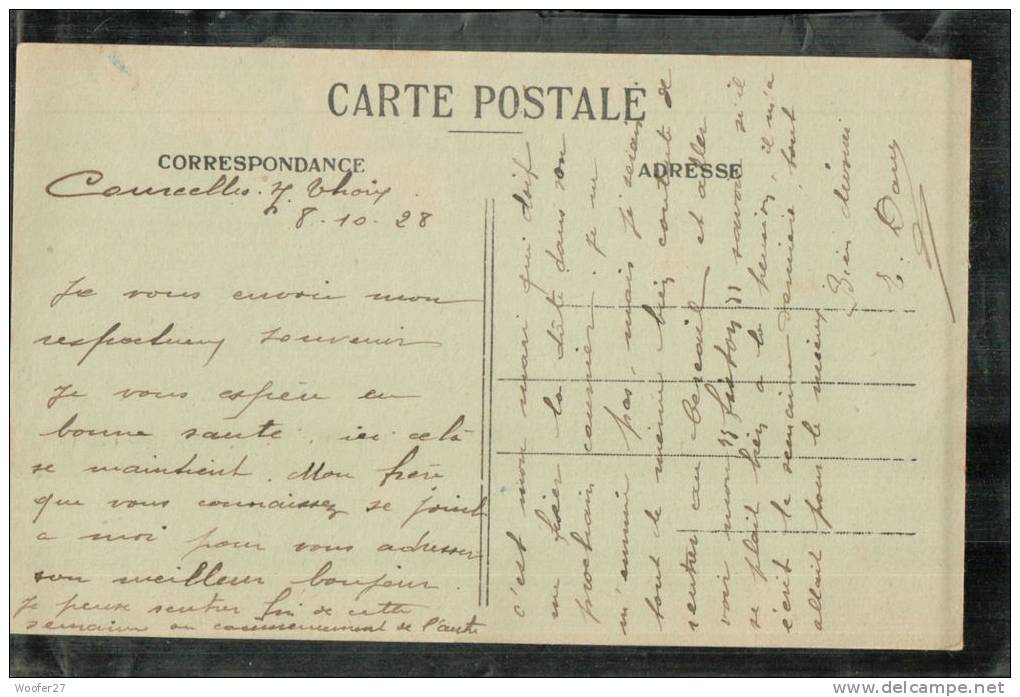 CARTE POSTALE
CORRESPONDANCE
ADRESSE
Courcelles. s. Thoix
8-10-28
Je vous envoie mon
respectueux souvenir
Je vous espère en
bonne santé, ici celà
se maintient. Mon frère
que vous connaissez se joint
a moi pour vous adresser
son meilleur bonjour.
Je pense rentrer fin de cette
semaine ou commencement de l'autre
c'est mon mari qui doit
me fixer la date dans son
prochain courrier. je ne
m'ennuie pas, mais je serais
tout de même bien contente de
rentrer au bercail et aller
voir mon " fiston " savoir si il
se plait bien a la pension, il m'a
écrit la semaine dernière, tout
allait pour le mieux.
Bien
E. Dary
Woofer27
www.delcampe.net